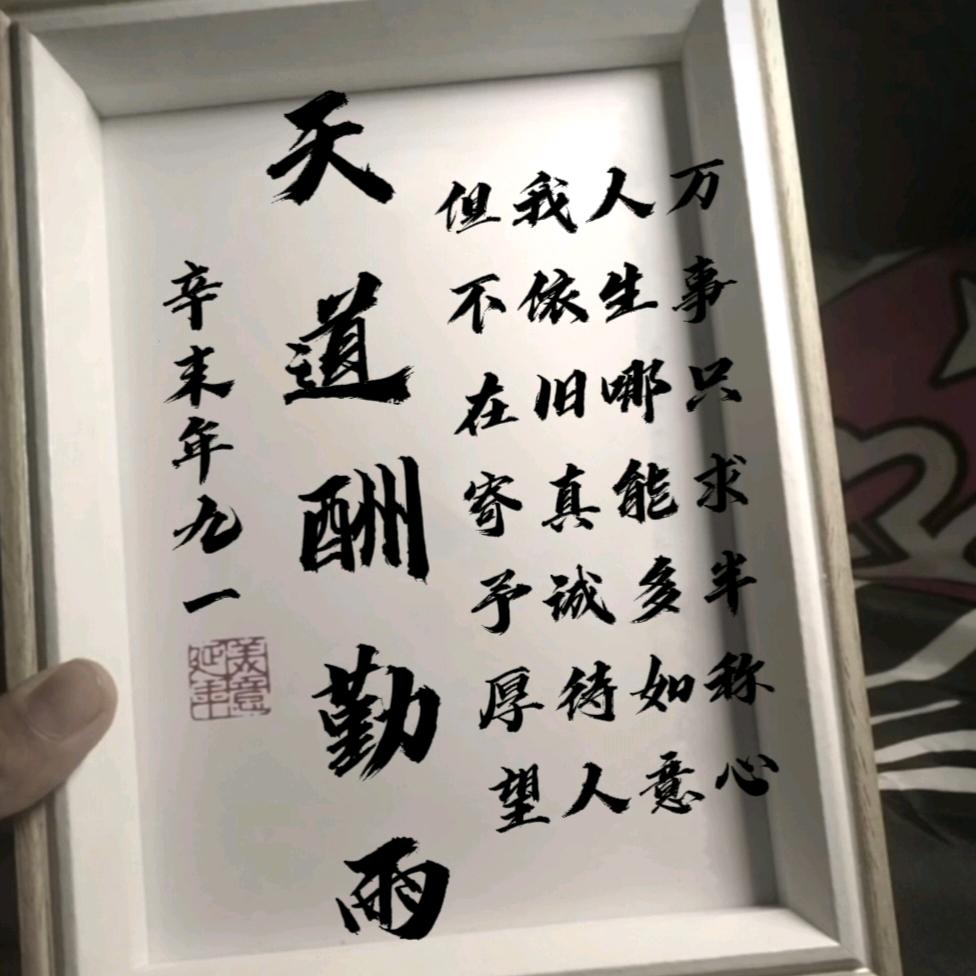 万事只求半称心
人生哪能多如意
我依旧真诚待人
但不在寄予厚望
天道酬勤雨
辛未年九一
美意延年